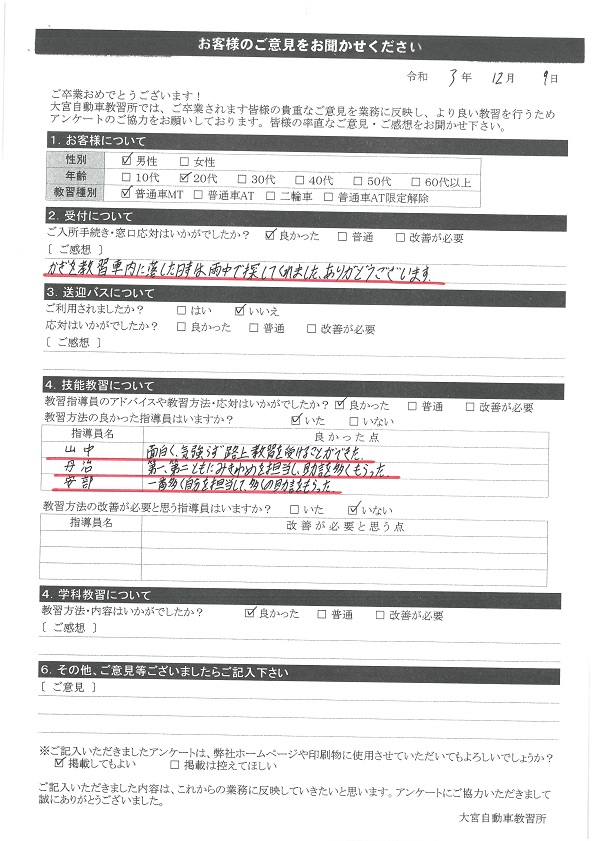 お客様のご意見をお聞かせください
令和 3年 12月 9日
ご卒業おめでとうございます！
大宮自動車教習所では、ご卒業されます皆様の貴重なご意見を業務に反映し、より良い教習を行うため
アンケートのご協力をお願いしております。皆様の率直なご意見・ご感想をお聞かせ下さい。
1. お客様について
性別 ☑男性 □女性
年齢 □10代 ☑20代 □30代 □40代 □50代 □60代以上
教習種別 ☑普通車MT □普通車AT □二輪車 □普通車AT限定解除
2. 受付について
ご入所手続き・窓口応対はいかがでしたか？ ☑良かった □普通 □改善が必要
[ ご感想 ]
かぎを教習車内に落した時は、雨中で探してくれました、ありがとうございます。
3. 送迎バスについて
ご利用されましたか？ □はい ☑いいえ
応対はいかがでしたか？ □良かった □普通 □改善が必要
[ ご感想 ]
4. 技能教習について
教習指導員のアドバイスや教習方法・応対はいかがでしたか？ ☑良かった □普通 □改善が必要
教習方法の良かった指導員はいますか？ ☑いた □いない
指導員名 良かった点
山中 面白く、気強らず路上教習を受けることができた。
丹治 第一、第二ともにみきわめを担当し、助言を多くもらった。
安部 一番多く自分を担当して、多くの助言をもらった。
教習方法の改善が必要と思う指導員はいますか？ □いた ☑いない
指導員名 改善が必要と思う点
4. 学科教習について
教習方法・内容はいかがでしたか？ ☑良かった □普通 □改善が必要
[ ご感想 ]
6. その他、ご意見等ございましたらご記入下さい
[ ご意見 ]
※ご記入いただきましたアンケートは、弊社ホームページや印刷物に使用させていただいてもよろしいでしょうか？
☑掲載してもよい □掲載は控えてほしい
ご記入いただきました内容は、これからの業務に反映していきたいと思います。アンケートにご協力いただきまして
誠にありがとうございました。
大宮自動車教習所